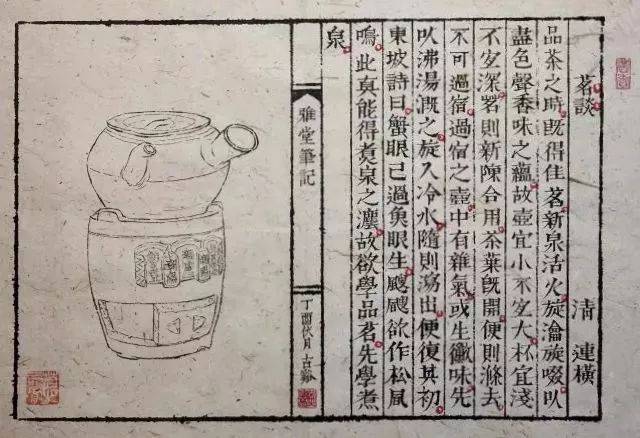 茗談 清 連橫
品茶之時既得佳茗新泉活火旋瀹旋啜以
盡色聲香味之蘊故壺宜小不宜大杯宜淺
不宜深茗則新陳合用茶葉既開便則滌去
不可過宿過宿之壺中有雜氣或生黴味先
以沸湯溉之旋入冷水隨則瀉出便復其初
東坡詩曰蟹眼已過魚眼生颼颼欲作松風
鳴此真能得煮泉之灋故欲學品茗先學煮
泉
雅堂筆記
丁酉伏月古谿